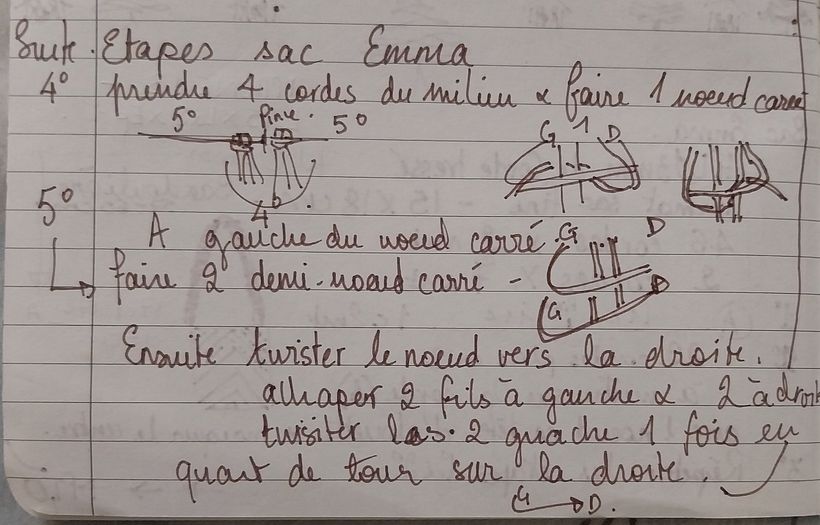 Suite. Etapes sac Emma
4° prendre 4 cordes du milieu & faire 1 noeud carré
5° 5°
G 1 D
4°
5° A gauche du noeud carré. G D
faire 2 demi-noeud carré - G D
Ensuite twister le noeud vers la droite.
attraper 2 fils à gauche & 2 à droit
twisiter les 2 guache 1 fois en
quart de tour sur la droite.
G → D.